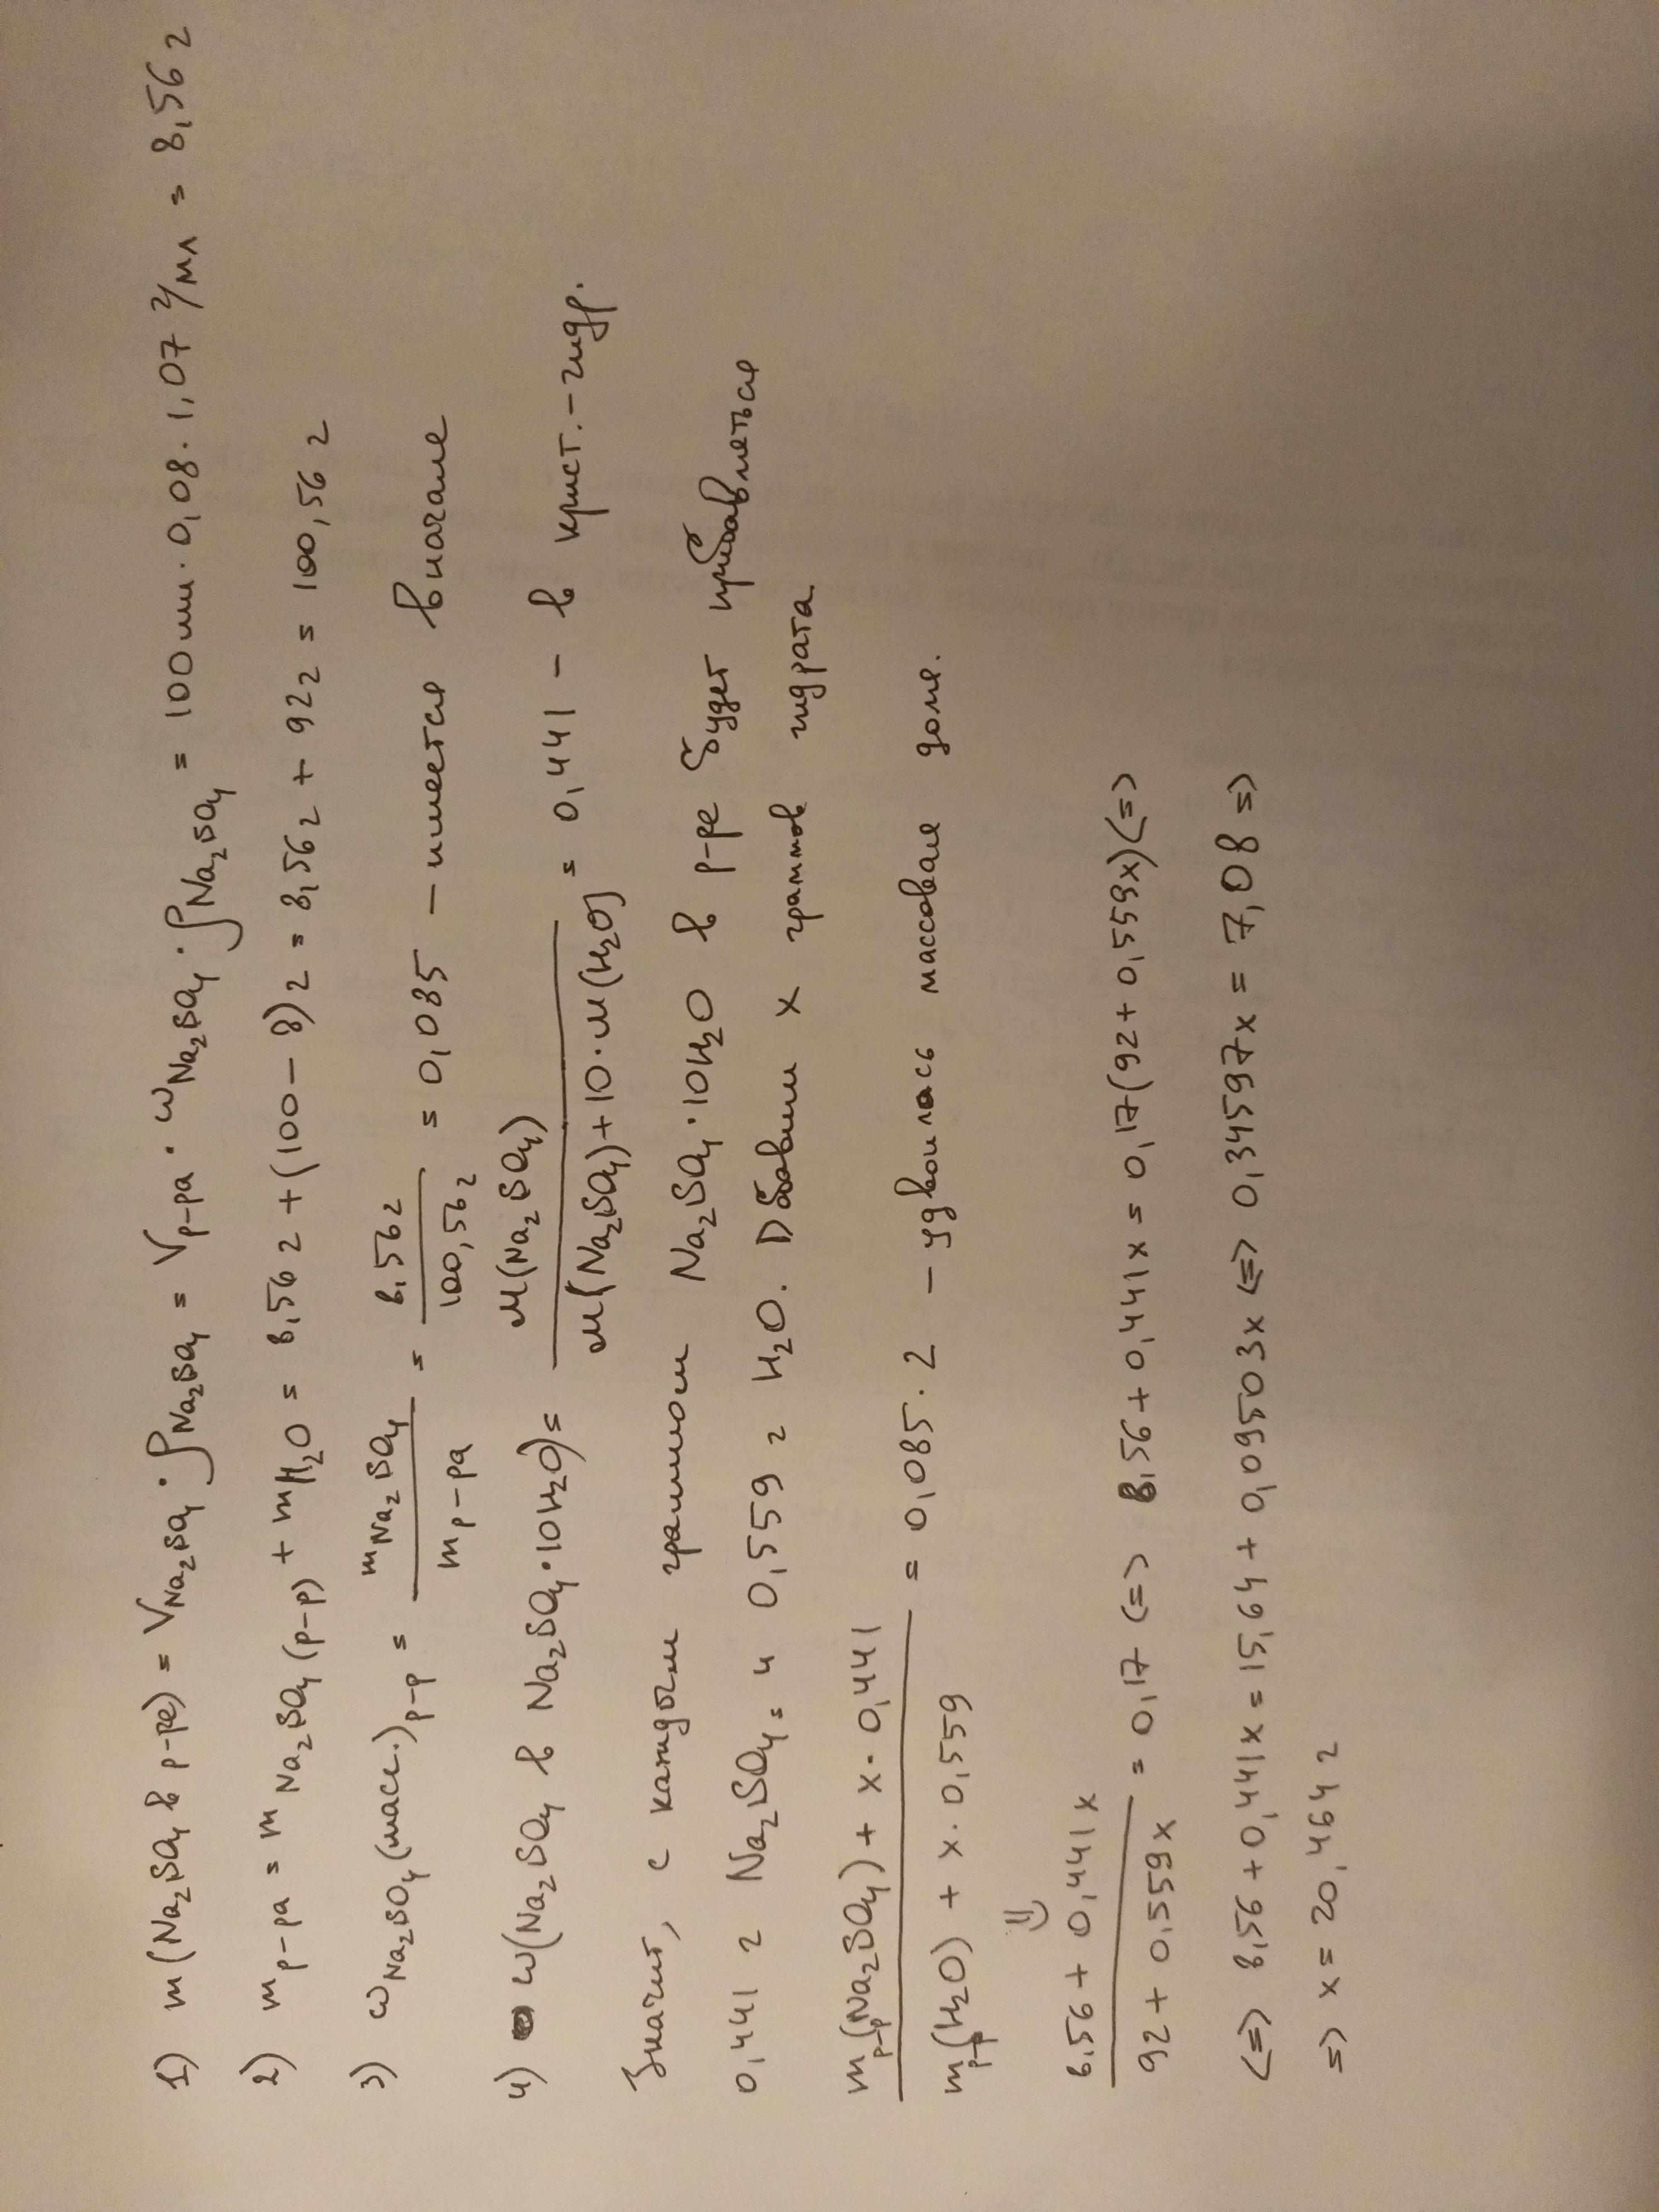 1) m(Na₂SO₄ в р-ре) = V Na₂SO₄ · ρ Na₂SO₄ = V р-ра · ω Na₂SO₄ · ρ Na₂SO₄ = 100 мл · 0,08 · 1,07 г/мл = 8,56 г
2) m р-ра = m Na₂SO₄ (р-р) + m H₂O = 8,56 г + (100 - 8) г = 8,56 г + 92 г = 100,56 г
3) ω Na₂SO₄ (масс.) р-р = m Na₂SO₄ / m р-ра = 8,56 г / 100,56 г = 0,085 - имеется вначале
4) ω(Na₂SO₄ в Na₂SO₄·10H₂O) = M(Na₂SO₄) / M(Na₂SO₄) + 10·M(H₂O) = 0,441 - в крист.-гидр.
Значит, с каждым граммом Na₂SO₄·10H₂O в р-ре будет прибавляться
0,441 г Na₂SO₄ и 0,559 г H₂O. Добавим x граммов гидрата
m р-р (Na₂SO₄) + x · 0,441 / m р-р (H₂O) + x · 0,559 = 0,085 · 2 - удвоилась массовая доля.
⇓
8,56 + 0,441x / 92 + 0,559x = 0,17 <=> 8,56 + 0,441x = 0,17(92 + 0,559x) <=>
<=> 8,56 + 0,441x = 15,64 + 0,09503x <=> 0,34597x = 7,08 =>
=> x = 20,464 г